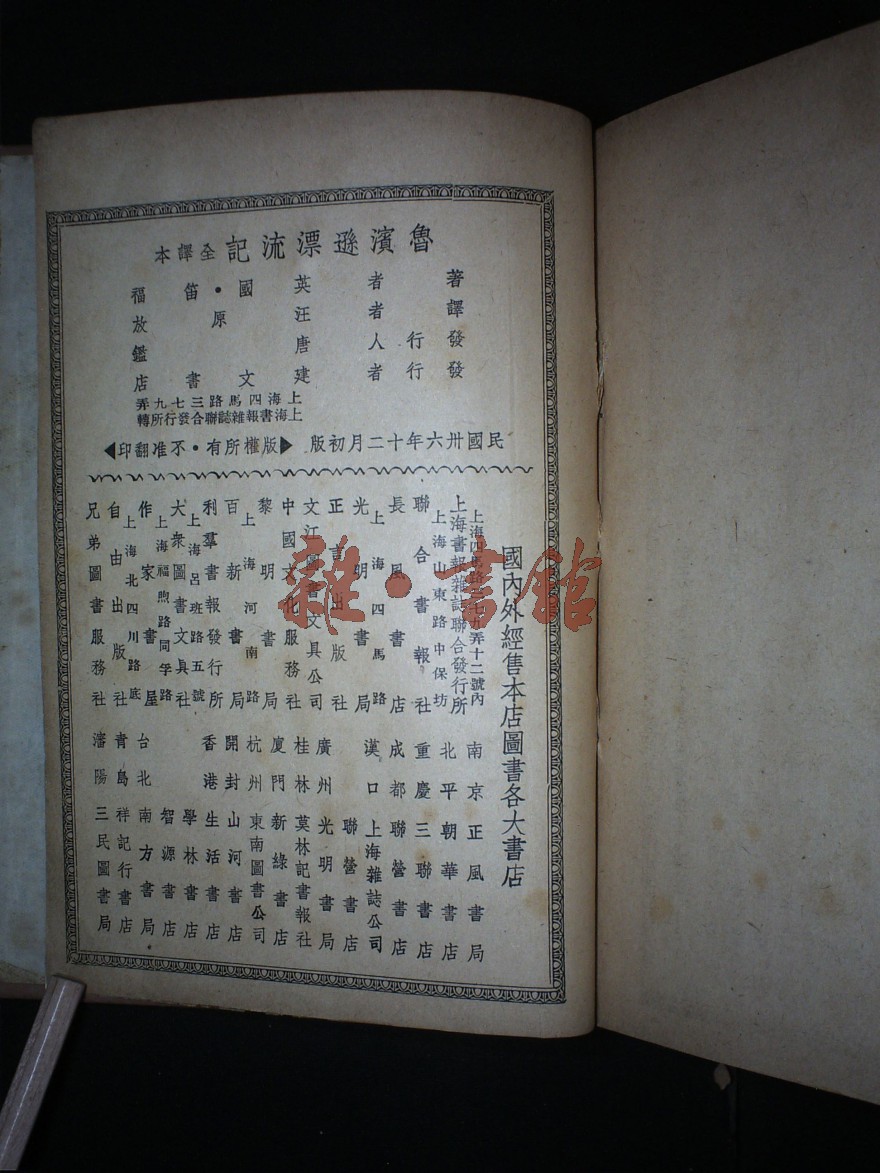 魯濱遜漂流記 全譯本
著者 英國・笛福
譯者 汪原放
發行人 唐鑑
發行者 建文書店
上海四馬路三七九弄
上海書報雜誌聯合發行所轉
民國卅六年十二月初版 ▶版權所有・不准翻印◀
國內外經售本店圖書各大書店
上海四馬路三七九弄十二號內
上海書報雜誌聯合發行所
上海山東路中保坊
聯合書報社
長風書店
上海四馬路
光明書局
正言出版社
文江圖書文具公司
中國文化服務社
黎明書局
上海河南路
百新書局
利羣書報發行所
上海呂班路五號
大衆圖書文具社
上海福煦路同孚路
作家書屋
上海北四川路底
自由出版社
兄弟圖書服務社
南京 正風書局
北平 朝華書店
重慶 三聯書店
成都 聯營書店
漢口 上海雜誌公司
聯營書店
廣州 光明書局
桂林 莫林記書報社
廈門 新綠書店
杭州 東南圖書公司
開封 山河書店
香港 生活書店
學林書店
智源書店
台北 南方書局
青島 祥記行書店
瀋陽 三民圖書局
雜・書館